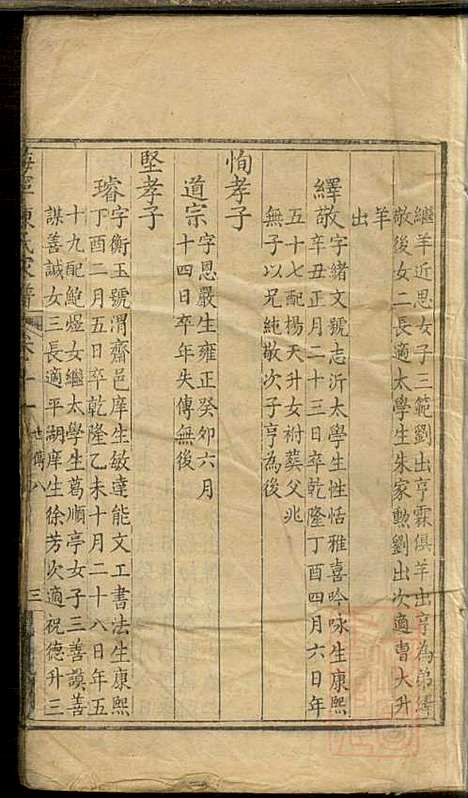 繼羊近思女子三範劉出亨霖俱羊出亨為弟繹
敬後女二長適太學生朱家勳劉出次適曹大升
羊
出
繹敬字緒文號志沂太學生性恬雅喜吟咏生康熙
辛丑正月二十三日卒乾隆丁酉四月六日年
五十七配楊天升女祔葬父兆
無子以兄純敬次子亨為後
恂孝子
道宗字恩嚴生雍正癸卯六月
十四日卒年失傳無後
堅孝子
璿字衡玉號渭齋邑庠生敏達能文工書法生康熙
丁酉二月五日卒乾隆乙未十月二十八日年五
十九配鮑煜女繼太學生葛順亭女子三善謨善
謀善誠女三長適平湖庠生徐芳次適祝德升三
海寧陳氏家譜 卷十一 世傳八 三